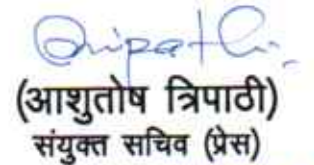 (आशुतोष त्रिपाठी)
संयुक्त सचिव (प्रेस)